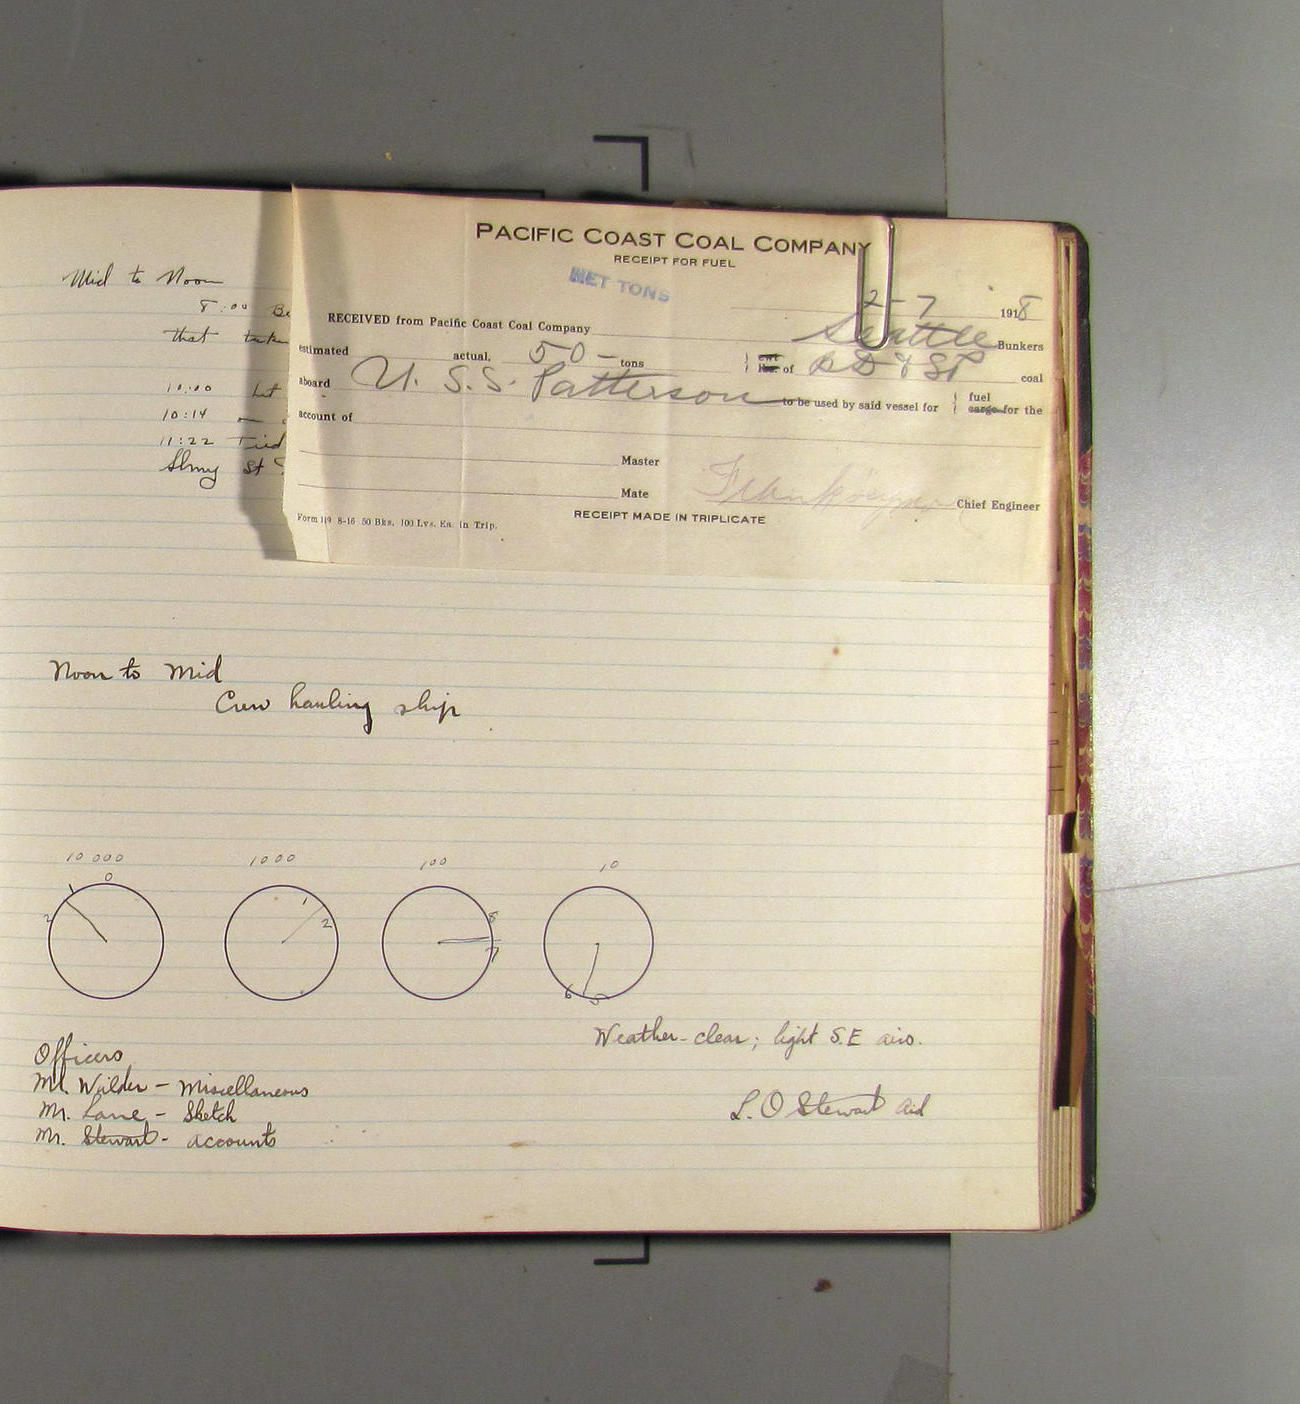 PACIFIC COAST COAL COMPANY
RECEIPT FOR FUEL
NET TONS
2-7 1918
RECEIVED from Pacific Coast Coal Company Seattle Bunkers
estimated actual, 50- tons of coal
aboard U. S. S. Patterson to be used by said vessel for fuel cargo for the
account of
Master
Mate Chief Engineer
RECEIPT MADE IN TRIPLICATE
Form 119 8-16 50 Bks. 100 Lvs. Ea. in Trip.
Mid to Noon
8:00
that
10:00
10:14
11:22 Tied
St
Noon to Mid
Crew hauling ship
10 000 1000 100 10
0
1 1 8
2 2 7
6 5
Weather-clear; light S.E airs.
Officers
Mr. Wilder - Miscellaneous
Mr. Lane - Sketch
Mr. Stewart - accounts
L. O Stewart aid